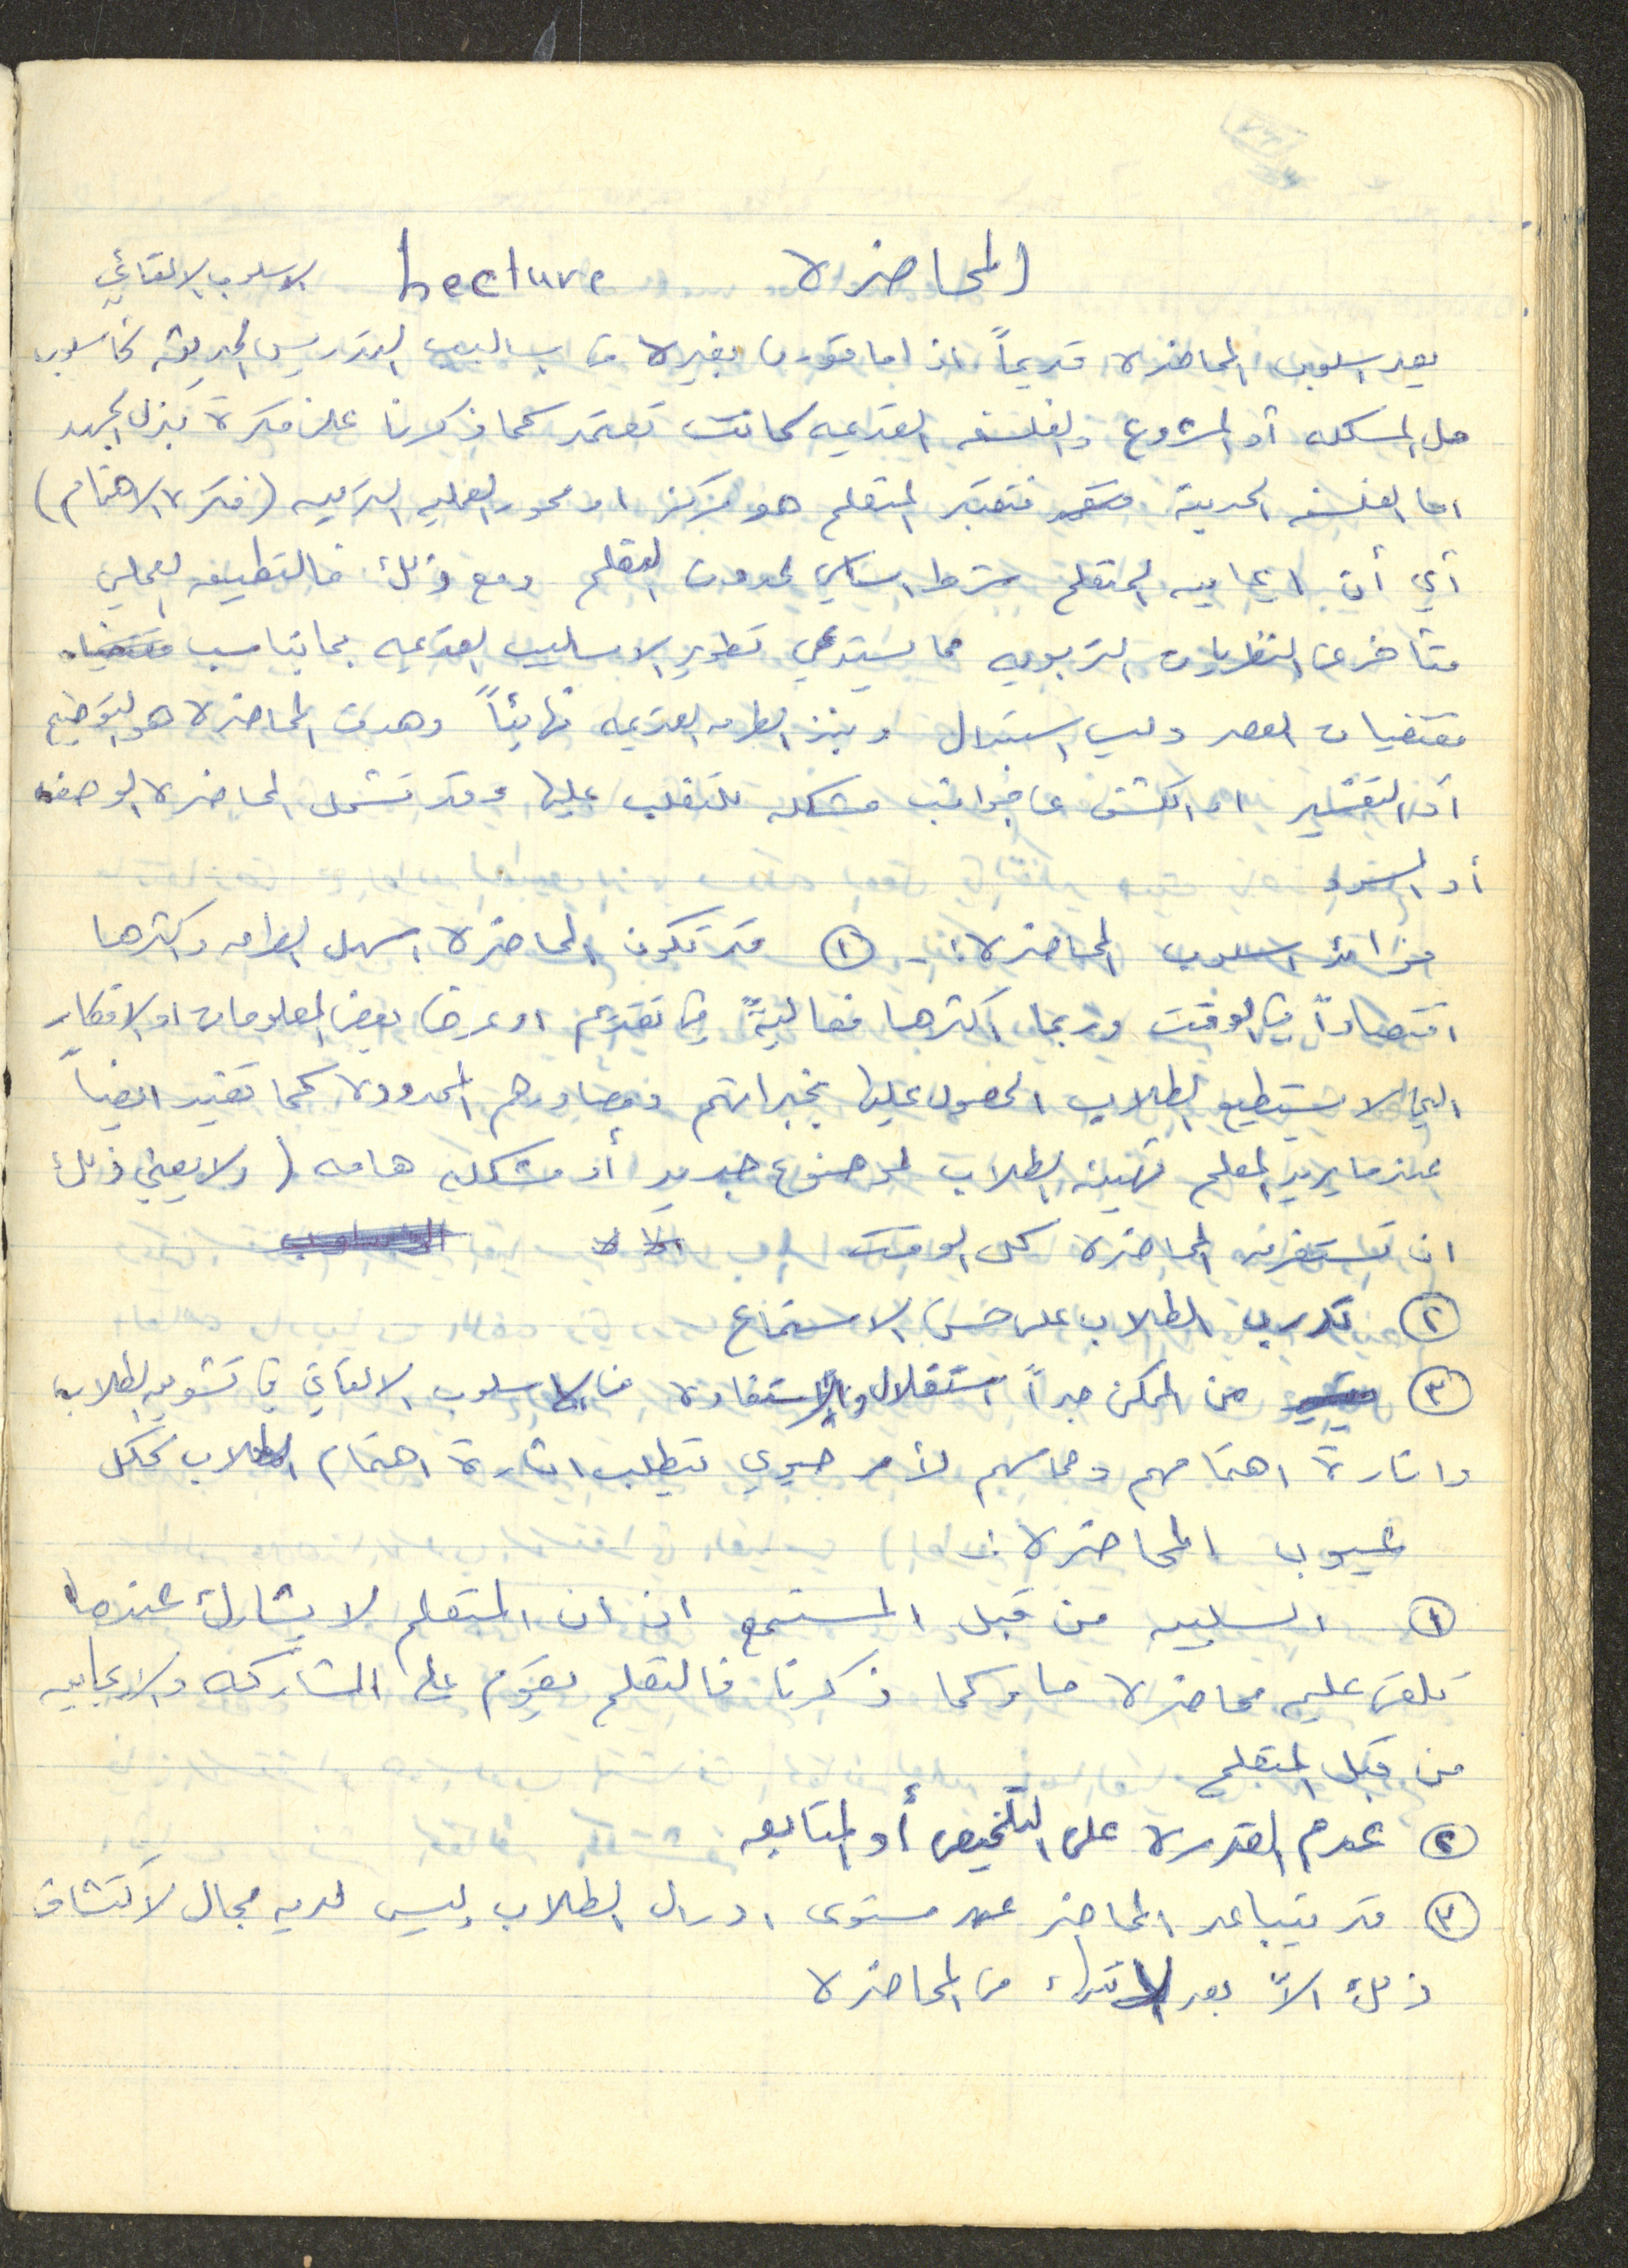 المحاضرة Lecture الاسلوب الالقائي
يعد اسلوب المحاضرة قديماً اذا ما قورن بغيره من اساليب التدريس الحديثه كاسلوب
حل المشكله أو المشروع والفلسفه القديمه كانت تعتمد كما ذكرنا على فكرة بذل الجهد
اما الفلسفه الحديثة فتعتبر المتعلم هو مركز او محور العمليه التربيه (فكرة الاهتمام)
أي أن ايجابيه المتعلم شرط اساسي لحدوث التعلم ومع ذلك فالتطبيق العملي
متأخر عن النظريات التربويه مما يستدعي تطوير الاساليب القديمه بما يتناسب
مقتضيات العصر وليس استبدال ونبذ الطرق القديمه نهائياً وهدف المحاضرة هو التوضيح
أو التفسير او الكشف عن جوانب مشكله للتغلب عليها وقد تشمل المحاضرة الوصف
أو السرد
فوائد اسلوب المحاضرة :- ① قد تكون المحاضرة اسهل الطرق واكثرها
اقتصاداً في الوقت وربما اكثرها فعاليةً في تقديم او عرض بعض المعلومات او الافكار
التي لا يستطيع الطلاب الحصول عليها بخبراتهم ومصادرهم المحدودة كما تفيد ايضاً
عندما يريد المعلم تهيئة الطلاب لموضوع جديد أو مشكله هامه (ولا يعني ذلك
ان تستغرق المحاضرة كل الوقت
② تدريب الطلاب على حسن الاستماع
③ من الممكن جداً استغلال والاستفادة من الاسلوب الالقائي في تشويق الطلاب
واثارة اهتمامهم وحماسهم لأمر حيوي يتطلب اثارة اهتمام الطلاب ككل
عيوب المحاضرة :-
① السلبيه من قبل المستمع اذ ان المتعلم لا يشارك عندما
تلقى عليه محاضرة ما وكما ذكرنا فالتعلم يقوم على المشاركه والايجابيه
من قبل المتعلم
② عدم القدرة على التلخيص أو المتابعه
③ قد يتباعد المحاضر عن مستوى ادراك الطلاب وليس لديه مجال لاكتشاف
ذلك الاّ بعد الانتهاء من المحاضرة